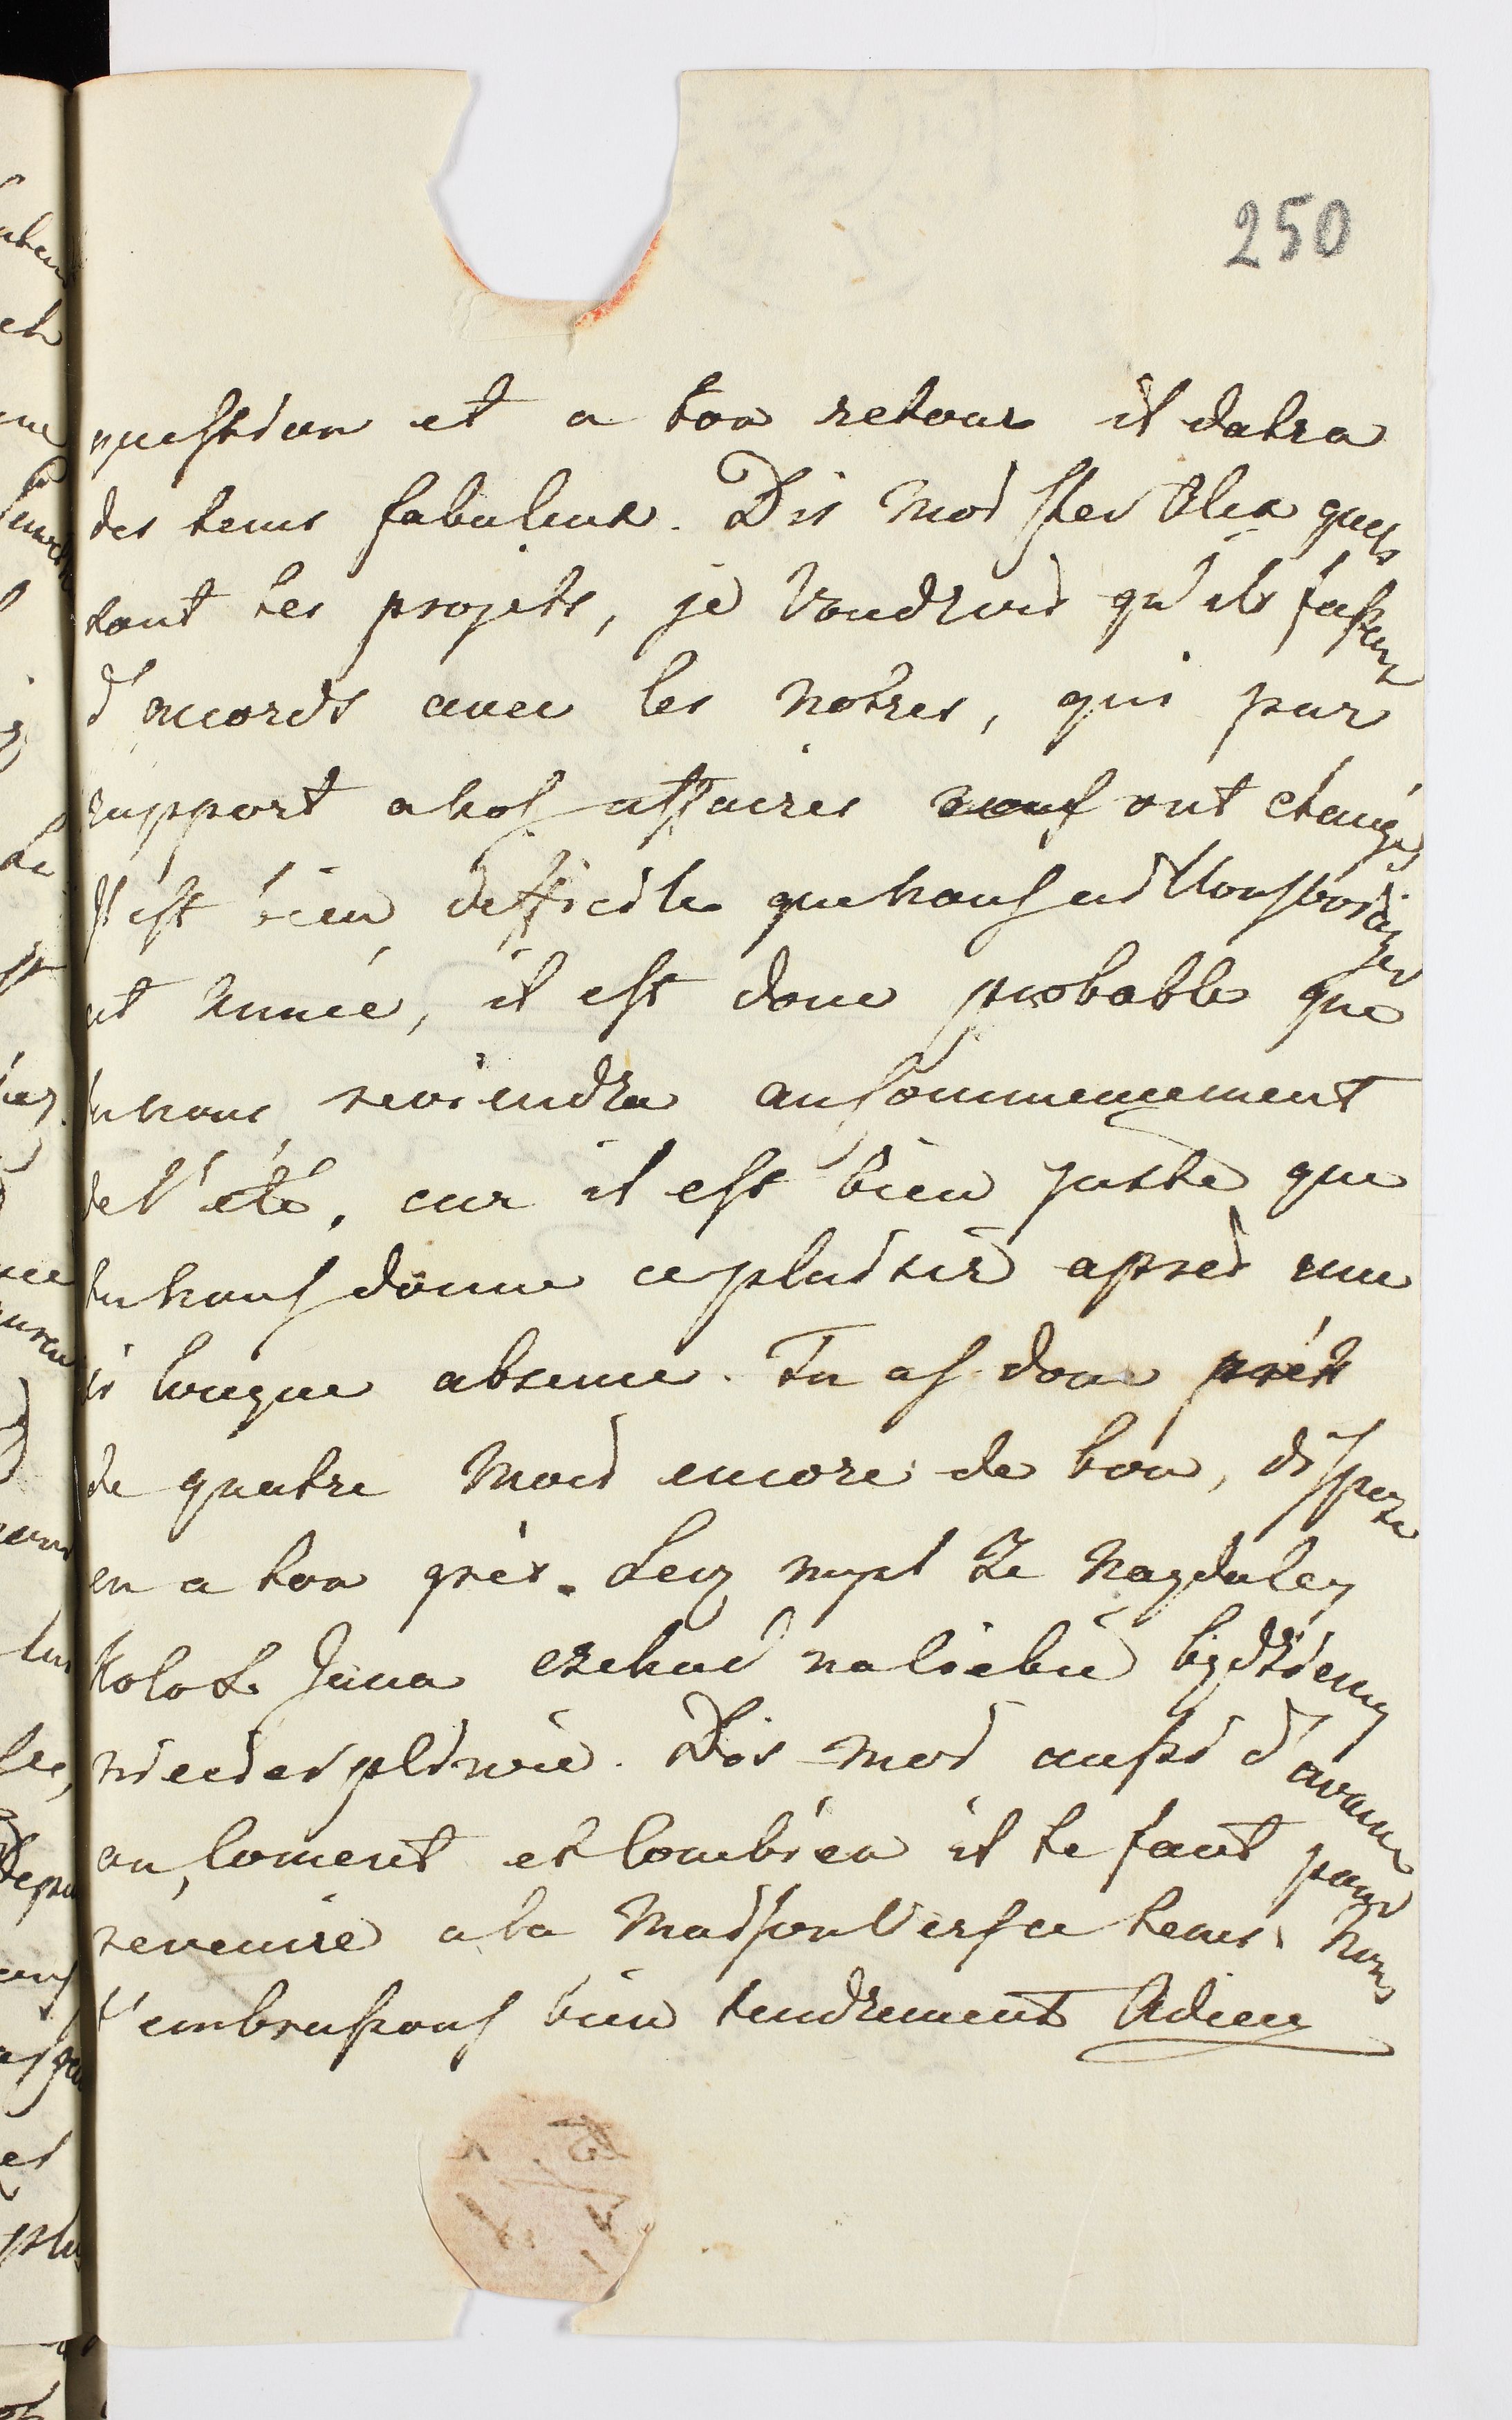 250
question et a ton retour il datra
des tems fabuleux. Dis moi cher Alex quels
sont tes projets, je voudrais qu'ils fussent
d'accords avec les notres, qui par
rapport a nos affaires ont changés
Il est bien difficile que nous aillons voiager
cet année, il est donc probable que
tu nous reviendra au commencement
de l'été, car il est bien juste que
tu nous donne ce plaisir après une
si longue absence. Tu as donc près
de quatre mois encore de bon, dispose
en a ton grès. Lecz mysl ze najdaley
koło S. Jana czekac na ciebie będziemy
niecierpliwie. Dis moi aussi d'avance
ou, coment et combien il te faut pour
revenire a la maison vers ce tems. Nous
t'embrassons bien tendrement Adieu